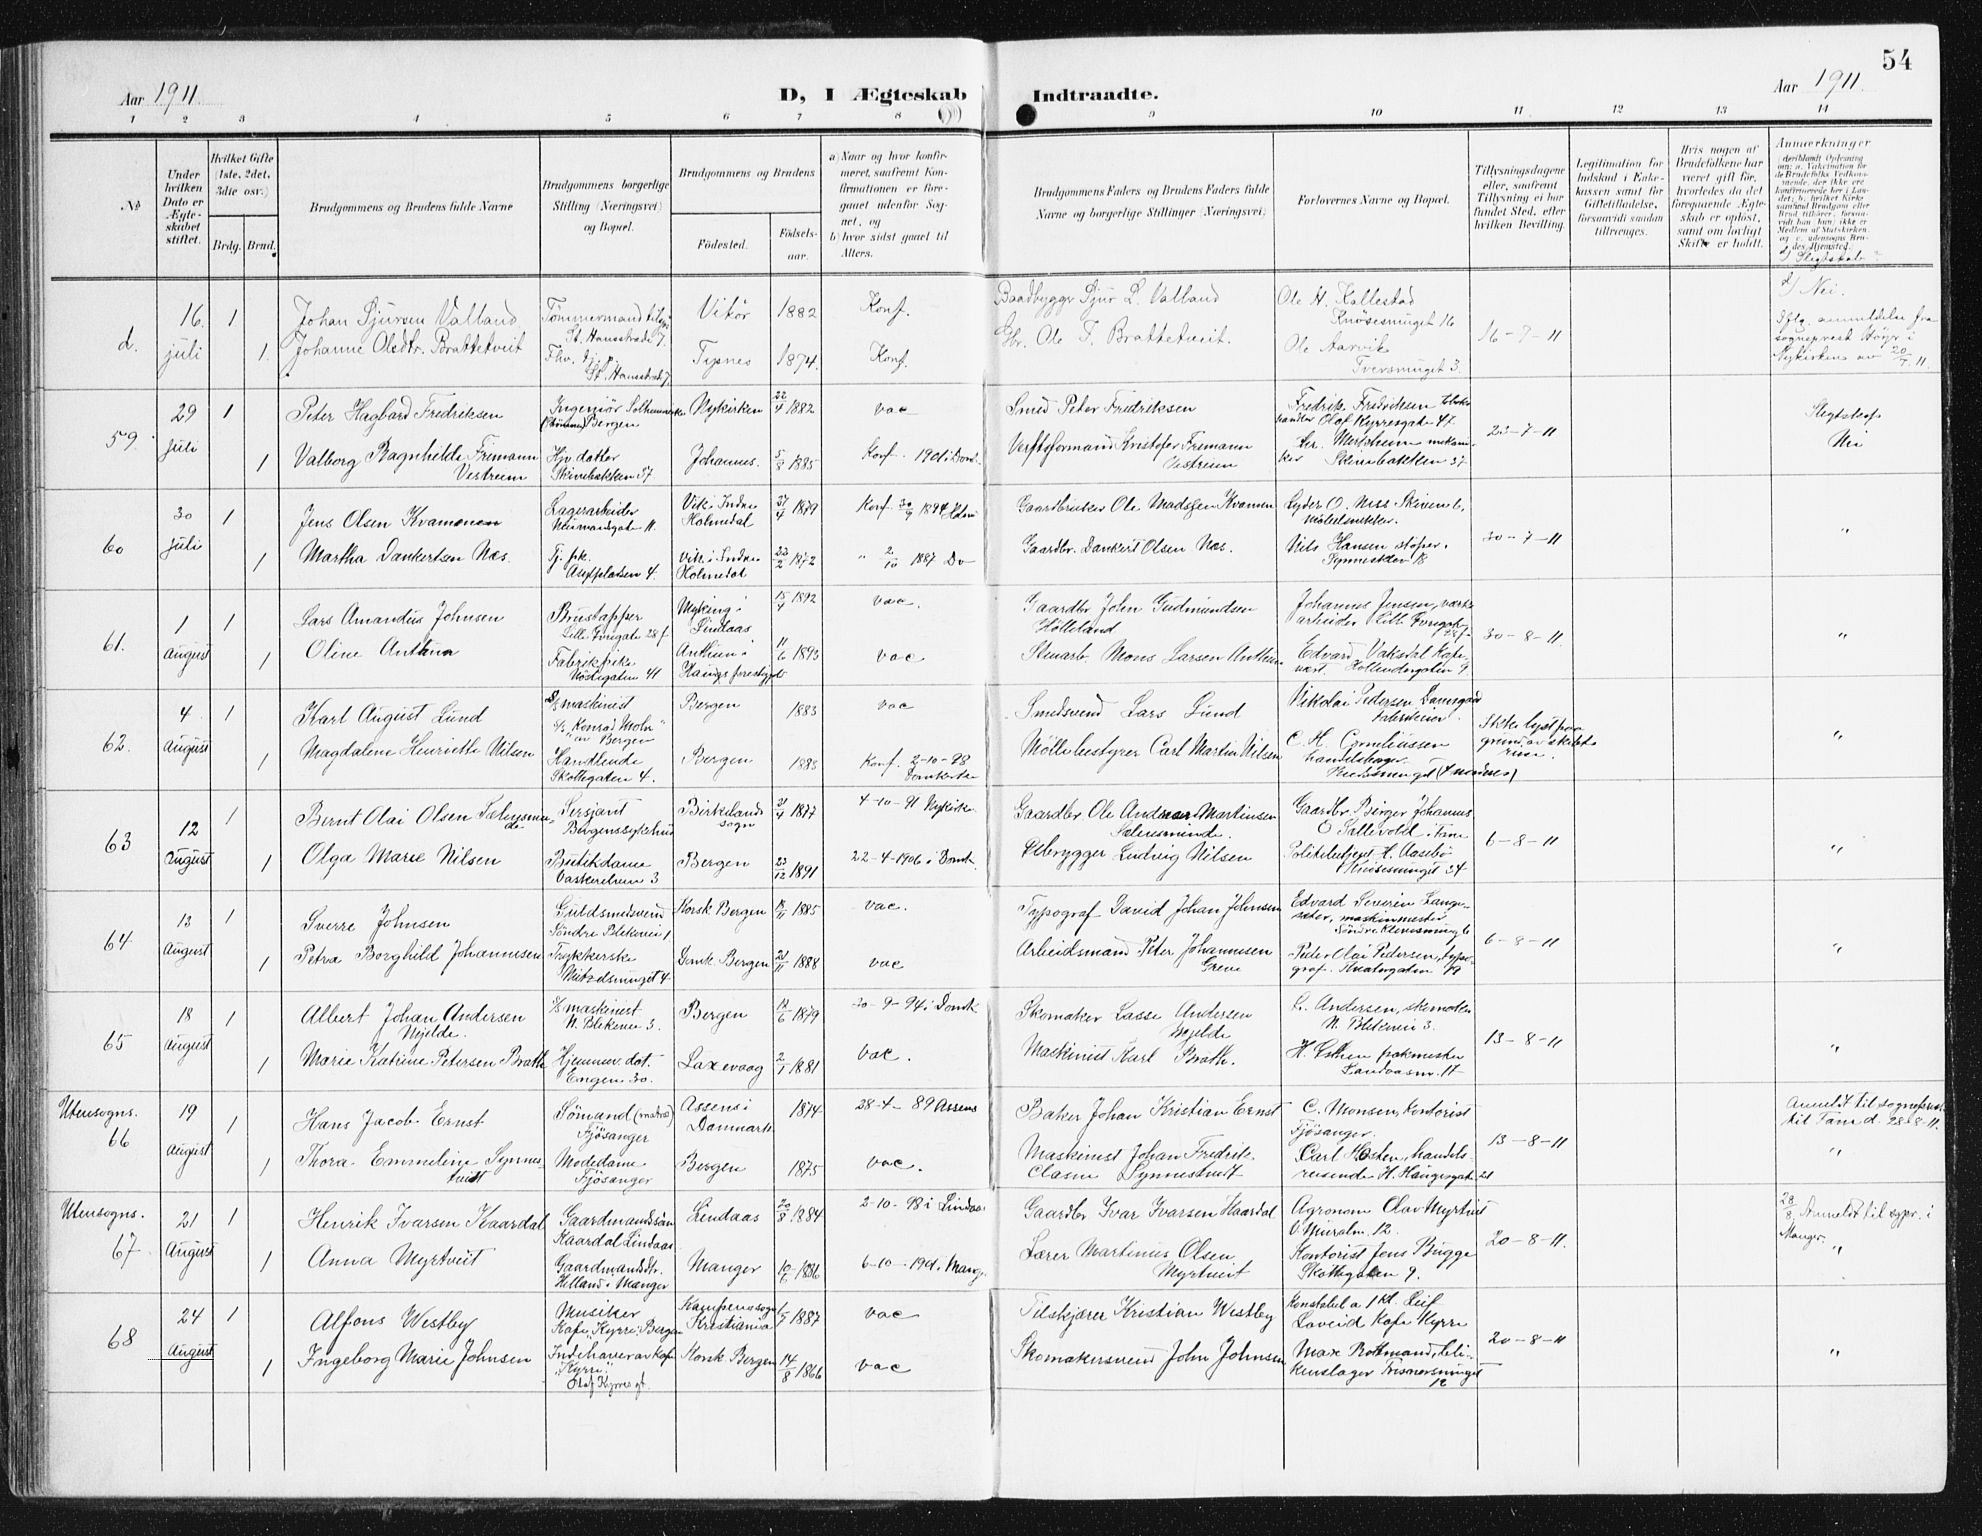 54
Aar 1911
D, I Ægteskab
Indtraadte.
Aar 1911.
1 2 3 4 5 6 7 8 9 10 11 12 13 14
№
Under hvilken Dato er Ægteskabet stiftet.
Hvilket Gifte (1ste, 2det, 3die osr.)
Brdg. Brud.
Brudgommens og Brudens fulde Navne
Brudgommens borgerlige Stilling (Næringsvei) og Bopæl.
Brudgommens og Brudens
Födested.
Födsels-aar.
a) Naar og hvor konfirmeret, saafremt Konfirmationen er foregaaet udenfor Sognet, og
b) hvor sidst gaaet til Alters.
Brudgommens Faders og Brudens Faders fulde Navne og borgerlige Stillinger (Næringsvei)
Forlovernes Navne og Bopæl.
Tillysningsdagene eller, saafremt Tillysning ei har fundet Sted, efter hvilken Bevilling.
Legitimation for Indskud i Enkekassen samt for Giftetilladelse, forsaavidt saadan tiltrænges.
Hvis nogen af Brudefolkene har været gift før, hvorledes da det foregaaende Ægteskab er opløst, samt om lovligt Skifte er holdt.
Anmærkninger
d) Slegtskab?
d. 16. juli 1 Johan Sjursen Valland Tømmermand St. Hansstrade 7. Vikør 1882 Konf. Baadbygger Sjur L. Valland Ole H. Kallestad Knøsesmuget 16 16-7-11 d) Nei.
1. Johanne Olsdtr. Brattetveit St. Hansstrade 7. Tysnes 1874. Konf. Gbr. Ole T. Brattetveit. Ole Aarvik Tversmuget 3. Iflg. anmeldelse fra sogneprest Höyr i Nykirken av 20/7 11.
59. 29 juli 1 Peter Hagbard Fredriksen Ingeniör Bergen Nykirken 22/4 1882 vac Smed Peter Fredriksen Fredrik Fredriksen Olaf Kyrresgate 47 23-7-11 Slegtskap Nei
1 Valborg Ragnhilde Fremann Vestreim Hjv. datter Skivebakken 37 Johannes. 5/8 1885 Konf. 1901 i Domk. Verftsformand Kristofer Fremann Vestreim Skivebakken 37
60 30 juli 1 Jens Olsen Kvamenen Lagerarbeider Neumansgate 11. Vik i Indre Holmedal 27/4 1879 Konf. 30/9 1894 Gaardbruker Ole Madsgen Kvamen Lyder O. Ness Skiven 6, 30-7-11 "
1 Martha Dankertsen Næs. Tj. pk. Asylplatsen 4. Vik i Indre Holmedal 23/2 1872 " 2/10 1887 Do Gaardbr. Dankert Olsen Næs. Nils Hansen stöper.
61. 1 August 1 Lars Amandus Johnsen Brustapper Lille Övregate 28 f. Myking i Lindaas 15/4 1892 vac. Gaardbr John Gudmundsen Hölleland Johannes Jensen, verks arbeider Lille Övregate 28 f. 30-8-11 "
1 Oline Anthun Fabrikpike Nöstegaten 41 Anthun i Haugs prestgjeld 11/6 1893 vac Stuarb. Mons Larsen Anthun Edvard Vaksdal Kafevert. Hollendergaten 9
62. 4 August 1 Karl August Lund S/s maskinist d/s "Konrad Mohn" av Bergen Bergen 1883 vac Smedsvend Lars Lund Nikolai Pedersen Damsgaard Ikke lyst paa grund av skibets reise. "
1 Magdalene Henriette Nilsen Handlende Skottegaten 4. Bergen 1883 Konf. 2-10-98 Domkirken Möllebestyrer Carl Martin Nilsen C. H. Corneliussen handelsborger
63 12 August 1 Bernt Olai Olsen Sælensminde Sersjant Bergens sykehus Birkelands sogn 21/4 1877 4-10-91 Nykirke Gaardbr Ole Andreas Martinsen Sælensminde. Gaardbr Birger Johannes O Sallevold i Fane 6-8-11 "
1 Olga Marie Nilsen Butikdame Vaskerelven 3 Bergen 23/12 1891 22-4-1906 i Domk Ölbrygger Ludvig Nilsen Politibetjent H. Aasebö Knösesmuget 34
64 13 August 1 Sverre Johnsen Guldsmedsvend Söndre Blekevei 1 Korsk Bergen 1885 vac. Typograf David Johan Johnsen Edvard Severin Langesæter, maskinmester 6-8-11 "
1 Petra Borghild Johannesen Trykkerske Domk. Bergen 21/11 1888 vac Arbeidsmand Peter Johannesen Greve Peder Olai Pedersen, typograf. Teatergaten 49
65 18 August 1 Albert Johan Andersen Mjelde. S/s maskinist N. Blekevei 3. Bergen 12/6 1879 30-9-94 i Domk Skomaker Lasse Andersen Mjelde L. Andersen, skomaker N. Blekevei 3. 13-8-11 "
1 Marie Katrine Petersen Brath Hjemmev. dat. Engen 30. Laxevaag 2/1 1881 vac. Maskinist Karl Brath.
Utensogns. 66 19 August 1 Hans Jacob Ernst Sömand Fjösanger Assens i Danmark 1874 28-4-89 Assens Baker Johan Kristian Ernst C. Monsen, kontorist Fjösanger. 13-8-11 Anmeldt til sogneprest til Fane d. 28-8-11. "
1 Thora Emmeline Synnestvedt Modedame Fjösanger Bergen 1875 vac. Maskinist Johan Fredrik Clasen Synnestvedt Carl Hosten, handelsreisende H. Haugesgate 21
Utensogns. 67. 21 August 1 Henrik Ivarsen Kaardal Gaardmandssön Kaardal Lindaas Lindaas 20/8 1884 2-10-98 i Lindaas Gaardbr Ivar Ivarsen Kaardal Agronom Olav Myrtveit V. Muralm. 12. 20-8-11. 28/8 Anmeldt til sgpr. i Manger. "
1 Anna Myrtveit Gaardmandsdtr. Helland i Manger Manger 1886 6-10-1901 Mang. Lærer Martinus Olsen Myrtveit Kontorist Jens Bugge Skottegaten 9.
68 24 August 1 Alfons Westby Musiker Kafe "Kyrre" Bergen Kampens sogn Kristiania 1887 vac Tilskjærer Kristian Westby Konstabel a 1 Kl. Leif Laveid Kafe Kyrre 20-8-11 "
1 Ingeborg Marie Johnsen Indehaver av Kafe "Kyrre" Olaf Kyrres gt. Korsk Bergen 14/8 1866 vac Skomakersvend John Johnsen Max Rottmand, blikkenslager